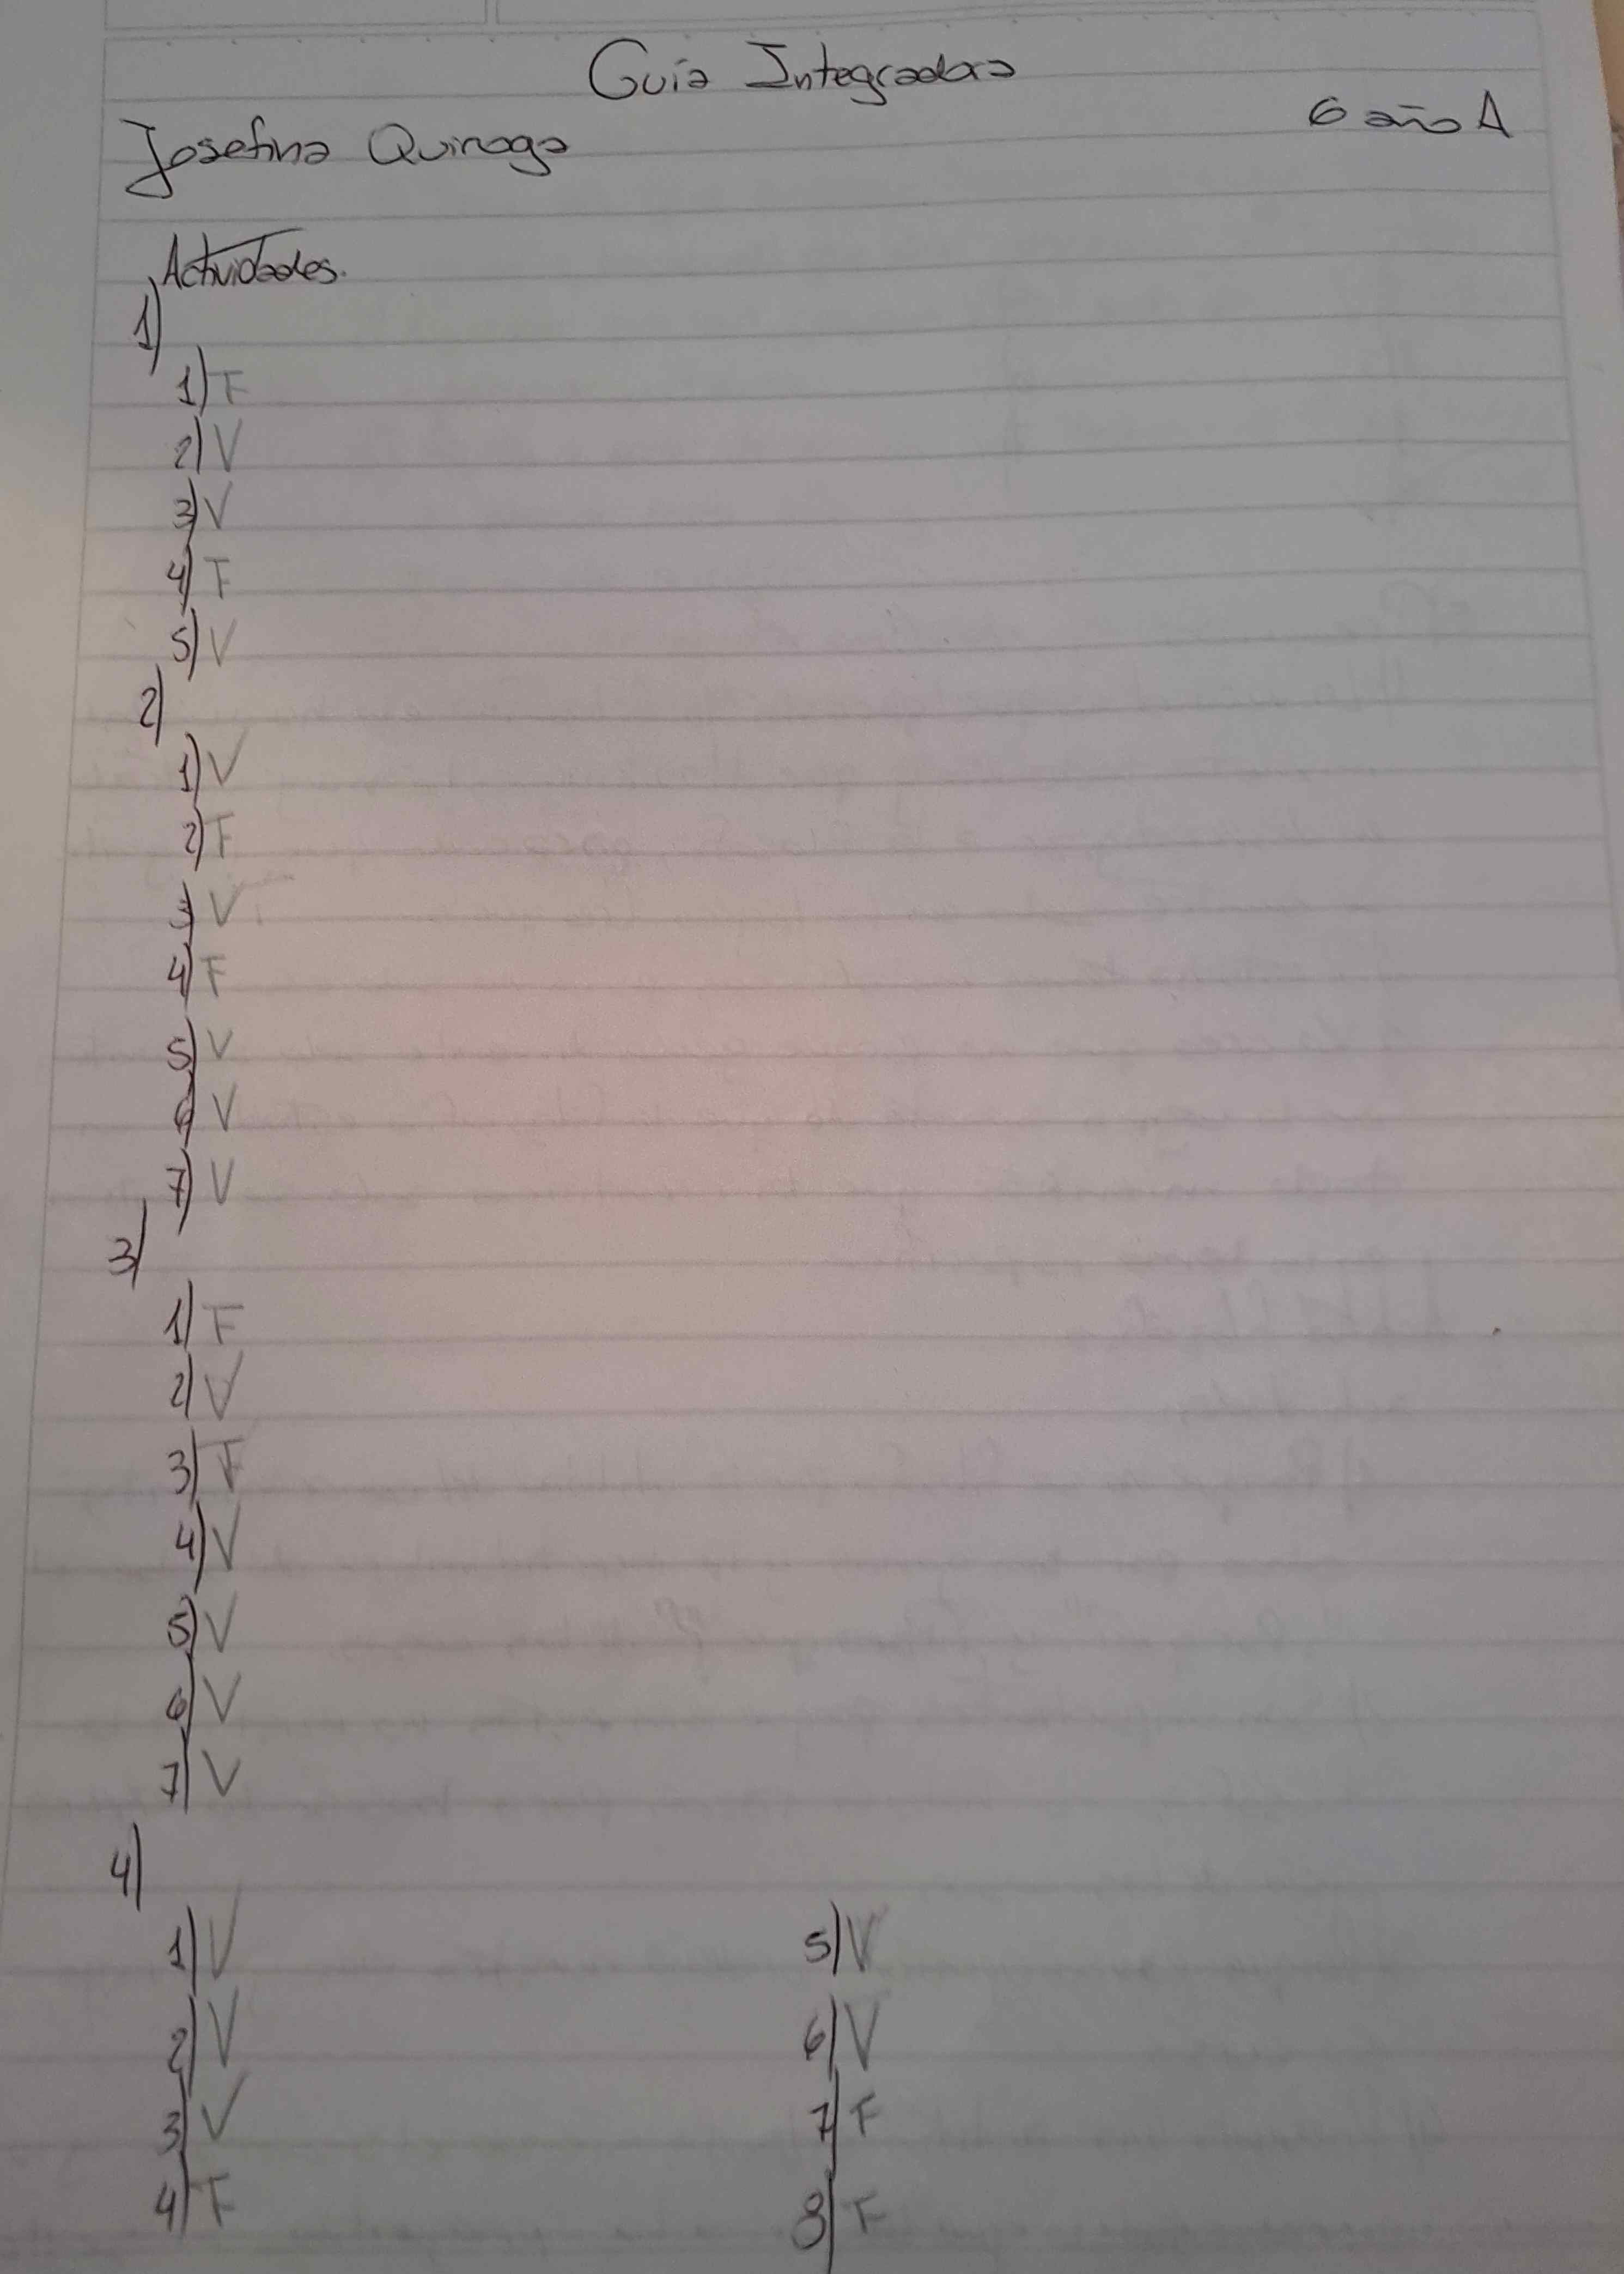 Guía Integradora
6 año A
Josefina Quiroga
Actividades.
1)
1) F
2) V
3) V
4) F
5) V
2)
1) V
2) F
3) V
4) F
5) V
6) V
7) V
3)
1) F
2) V
3) F
4) V
5) V
6) V
7) V
4)
1) V
2) V
3) V
4) F
5) V
6) V
7) F
8) F